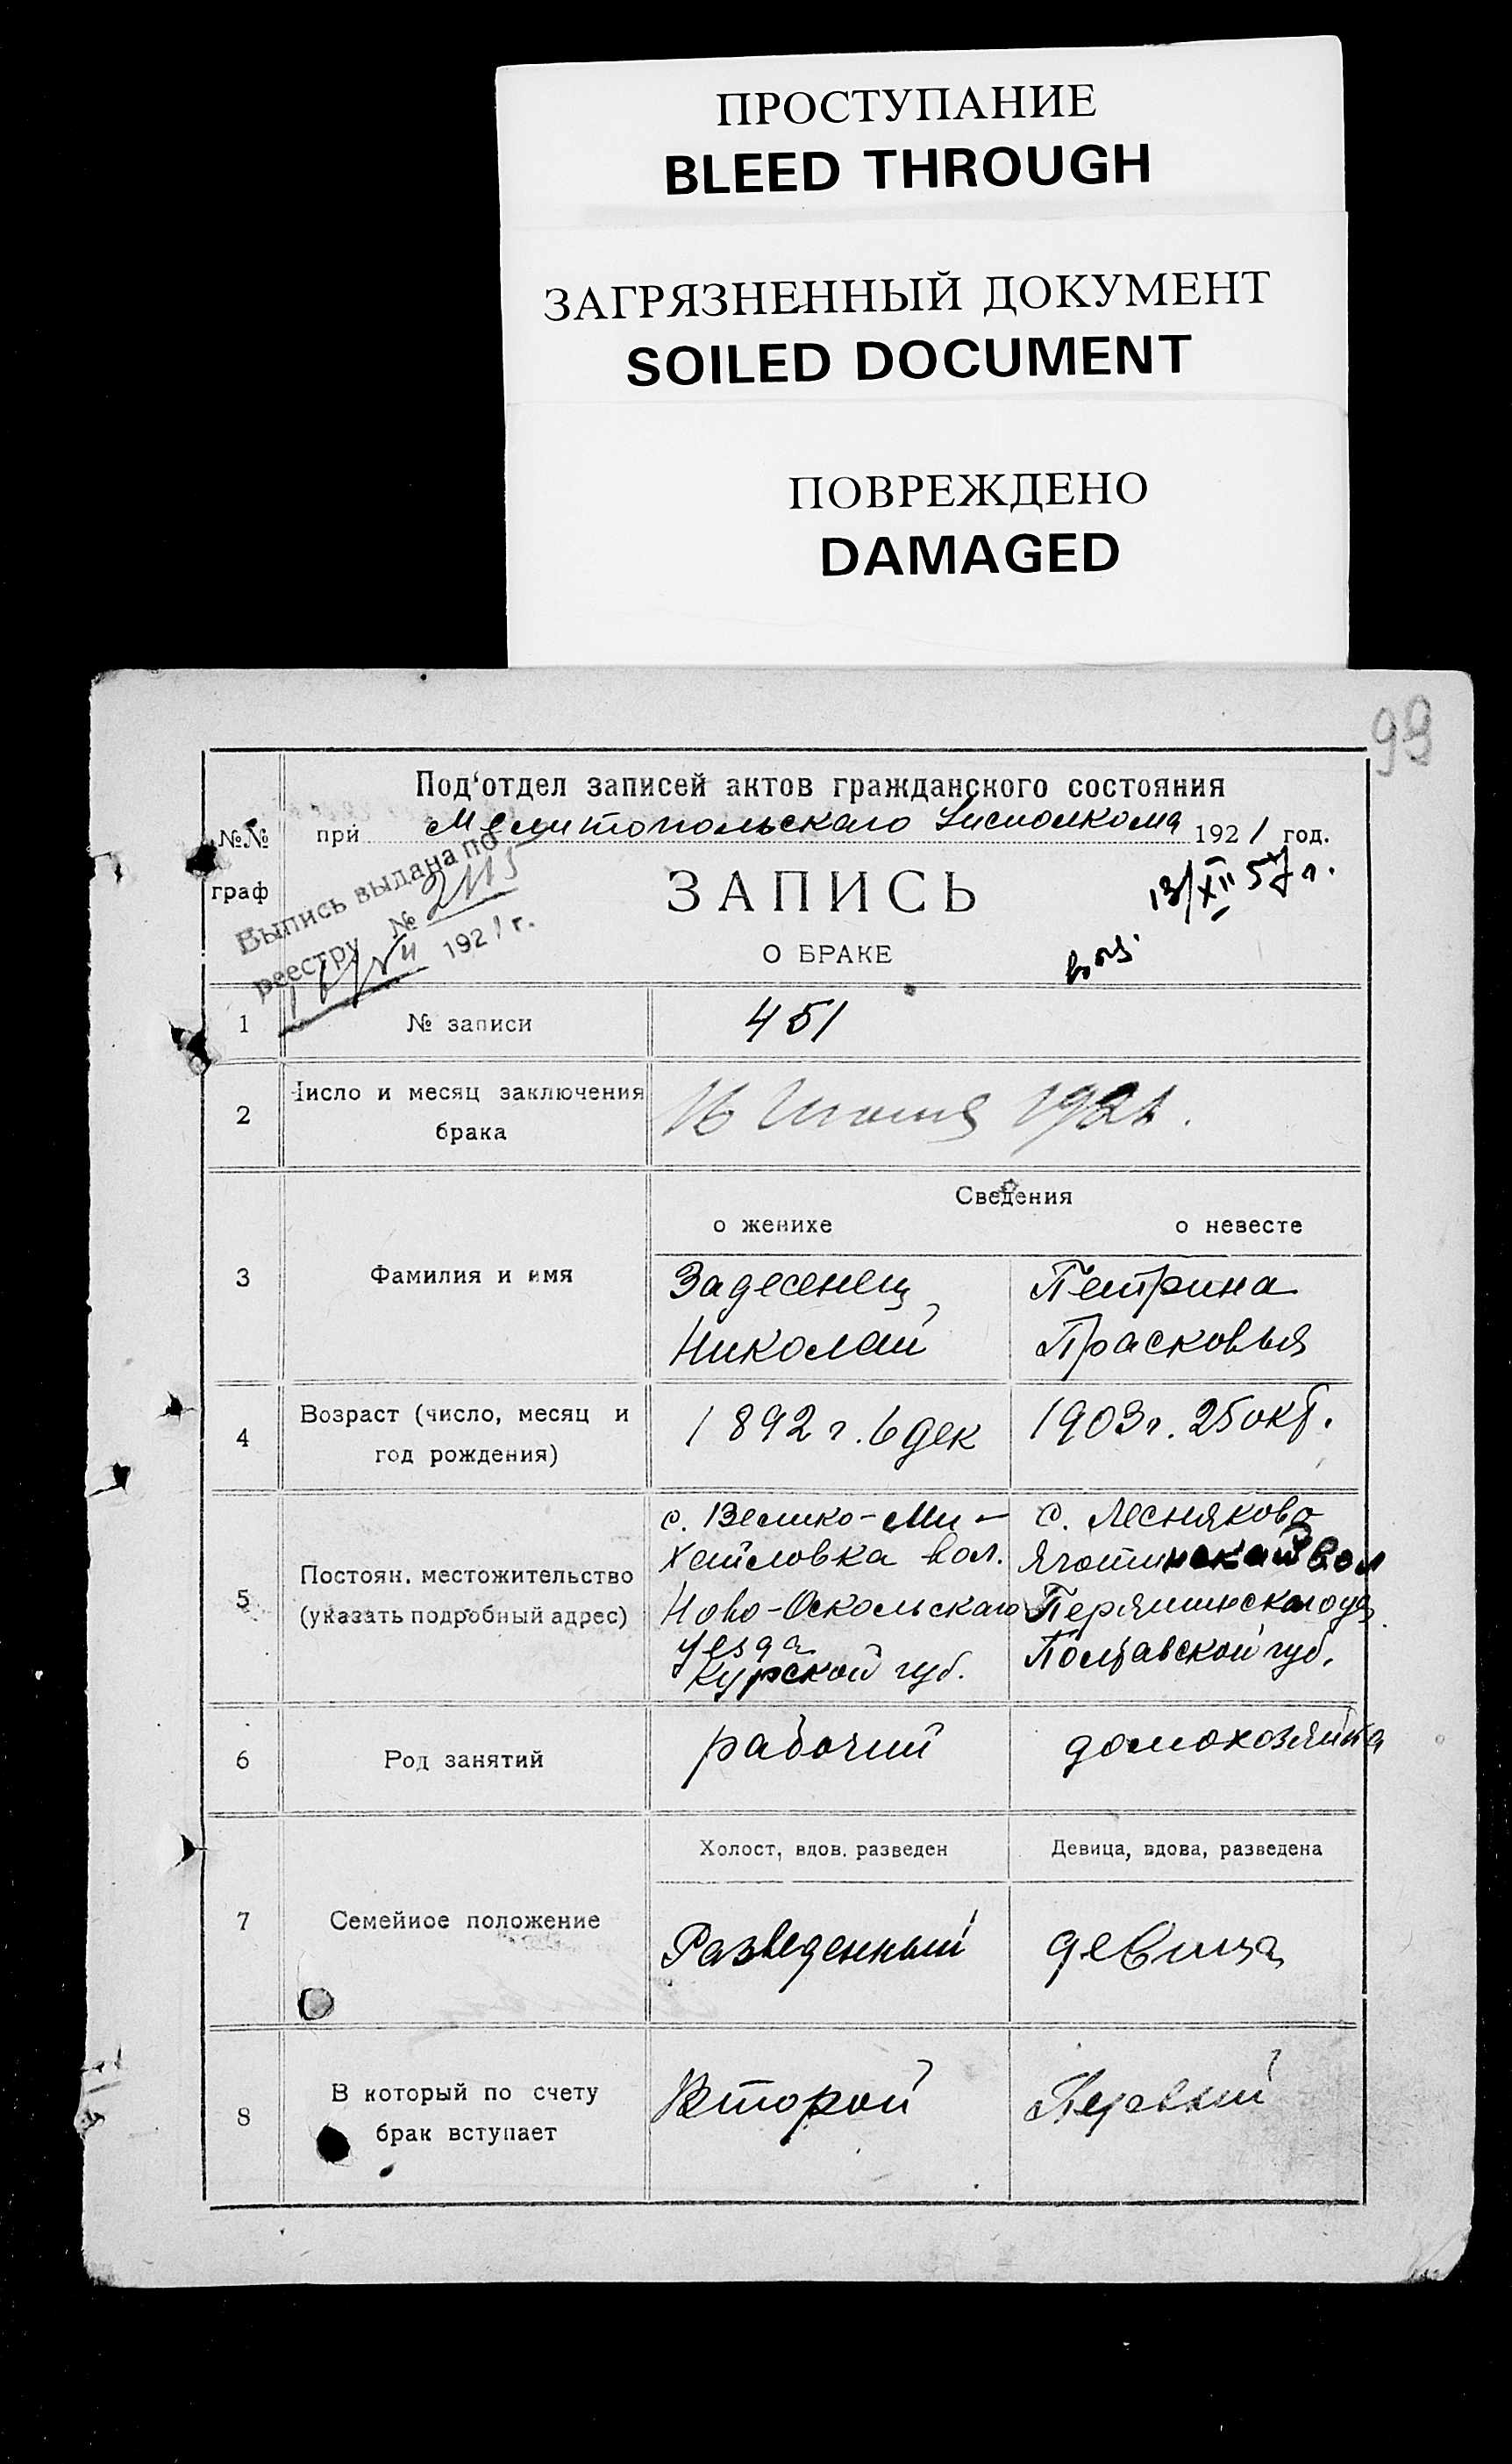 ПРОСТУПАНИЕ
BLEED THROUGH
ЗАГРЯЗНЕННЫЙ ДОКУМЕНТ
SOILED DOCUMENT
ПОВРЕЖДЕНО
DAMAGED
99
Под'отдел записей актов гражданского состояния
при Мелитопольскаго Исполкома 1921 год.
№№
граф
Выпись выдана по
реестру № 2115
1921 г.
ЗАПИСЬ
О БРАКЕ
13/XII 57 г.
1 № записи 451
2 Число и месяц заключения
брака
16 1921.
Сведения
о женихе о невесте
3 Фамилия и имя
Задесенец Петрина
Николай Прасковья
4 Возраст (число, месяц и
год рождения)
1892 г. 6 дек 1903 г. 25 окт.
5 Постоян. местожительство
(указать подробный адрес)
с. Велико-Ми-
Хайловка вол.
Ново-Оскольскаго
уезда
Курской губ.
с. Лесняково
Яготинской вол
Полтавской губ.
6 Род занятий рабочий домохозяйка
Холост, вдов. разведен Девица, вдова, разведена
7 Семейное положение Разведенный девица
8 В который по счету
брак вступает
Второй Первый